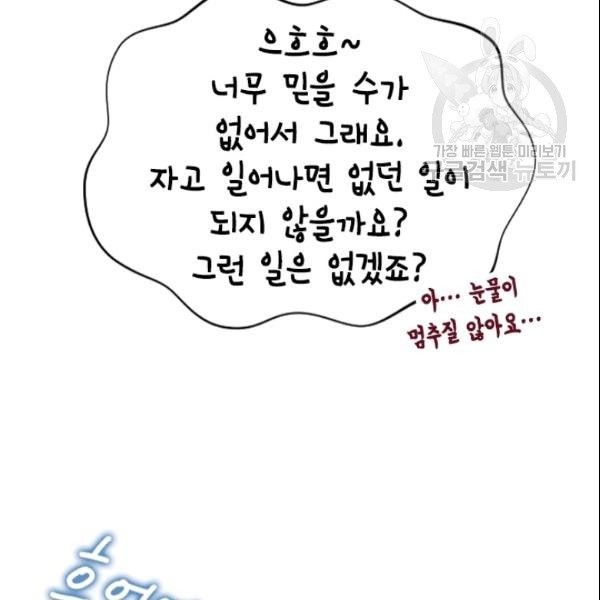 으흐흐~
너무 믿을 수가
없어서 그래요.
자고 일어나면 없던 일이
되지 않을까요?
그런 일은 없겠죠?
아… 눈물이
멈추질 않아요…
가장 빠른 웹툰 미리보기
뉴토끼